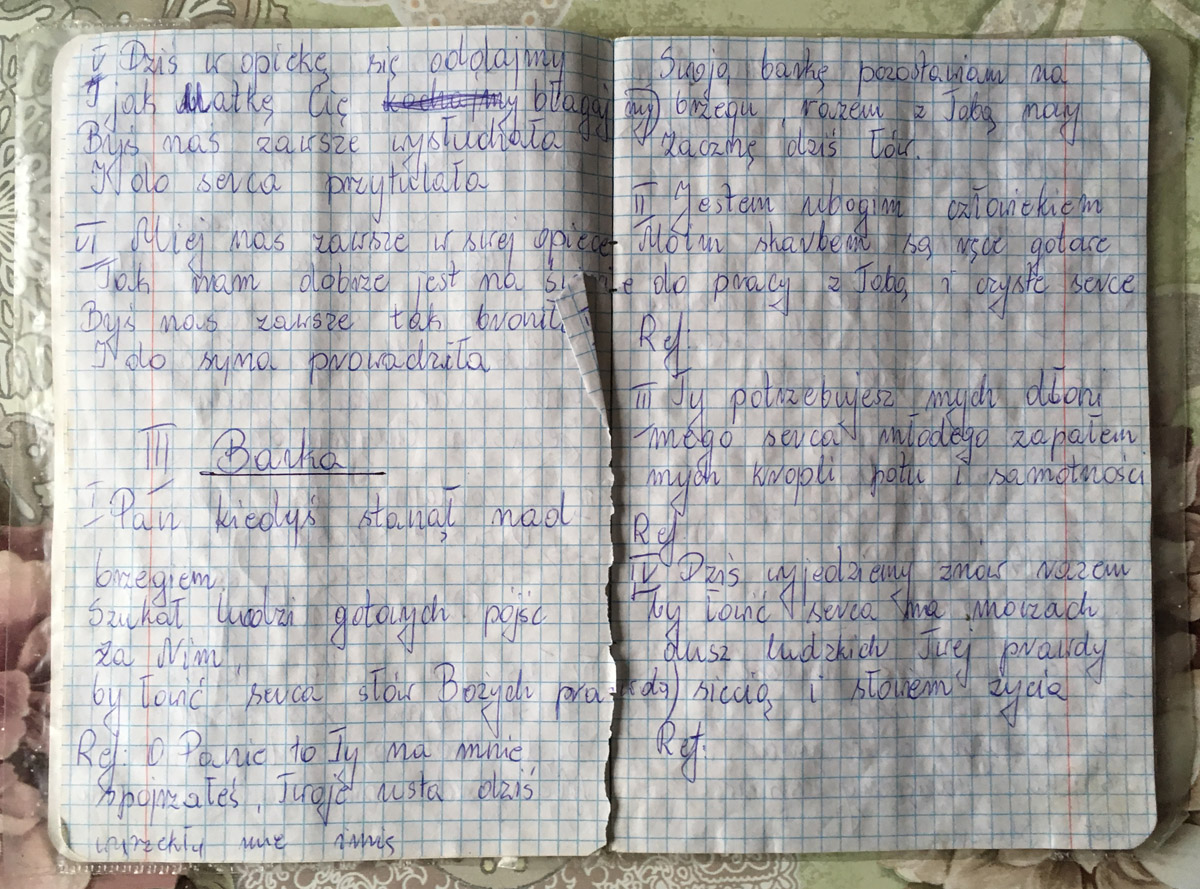 V Dziś w opiekę się oddajmy
I jak Matkę Cię kochajmy błagaj(my)
Byś nas zawsze wysłuchała
I do serca przytulała
VI Miej nas zawsze w swej opiece
Jak nam dobrze jest na
Byś nas zawsze tak
I do syna prowadziła
III Barka
I Pan kiedyś stanął nad
brzegiem,
Szukał ludzi gotowych pójść
za Nim,
by łowić serca słów Bożych prawdą)
Ref: O Panie to Ty na mnie
spojrzałeś, Twoje usta dziś
wyrzekły me imię
Swoją barkę pozostawiam na
brzegu, razem z Tobą nowy
zacznę dziś łów.
II Jestem ubogim człowiekiem
Moim skarbem są ręce gotowe
do pracy z Tobą i czyste serce
Ref:
III Ty potrzebujesz mych dłoni
mego serca młodego zapałem
mych kropli potu i samotności
Ref
IV Dziś wyjedziemy znów razem
by łowić serca na morzach
dusz ludzkich Twej prawdy
siecią i słowem życia
Ref: